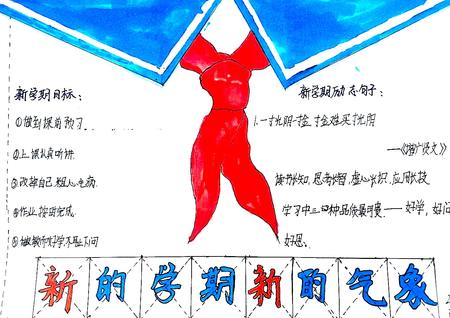 新学期目标：
①做到课前预习.
②上课认真听讲.
③改掉自己粗心毛病.
④作业按时完成.
⑤不耻下问
新学期励志句子：
1.一寸光阴一寸金,寸金难买寸光阴
——《增广贤文》
读书长知,思考增智,虚心长识,应用长技
学习中三四种品质最可贵——好学,好问
好思.
新的学期新的气象